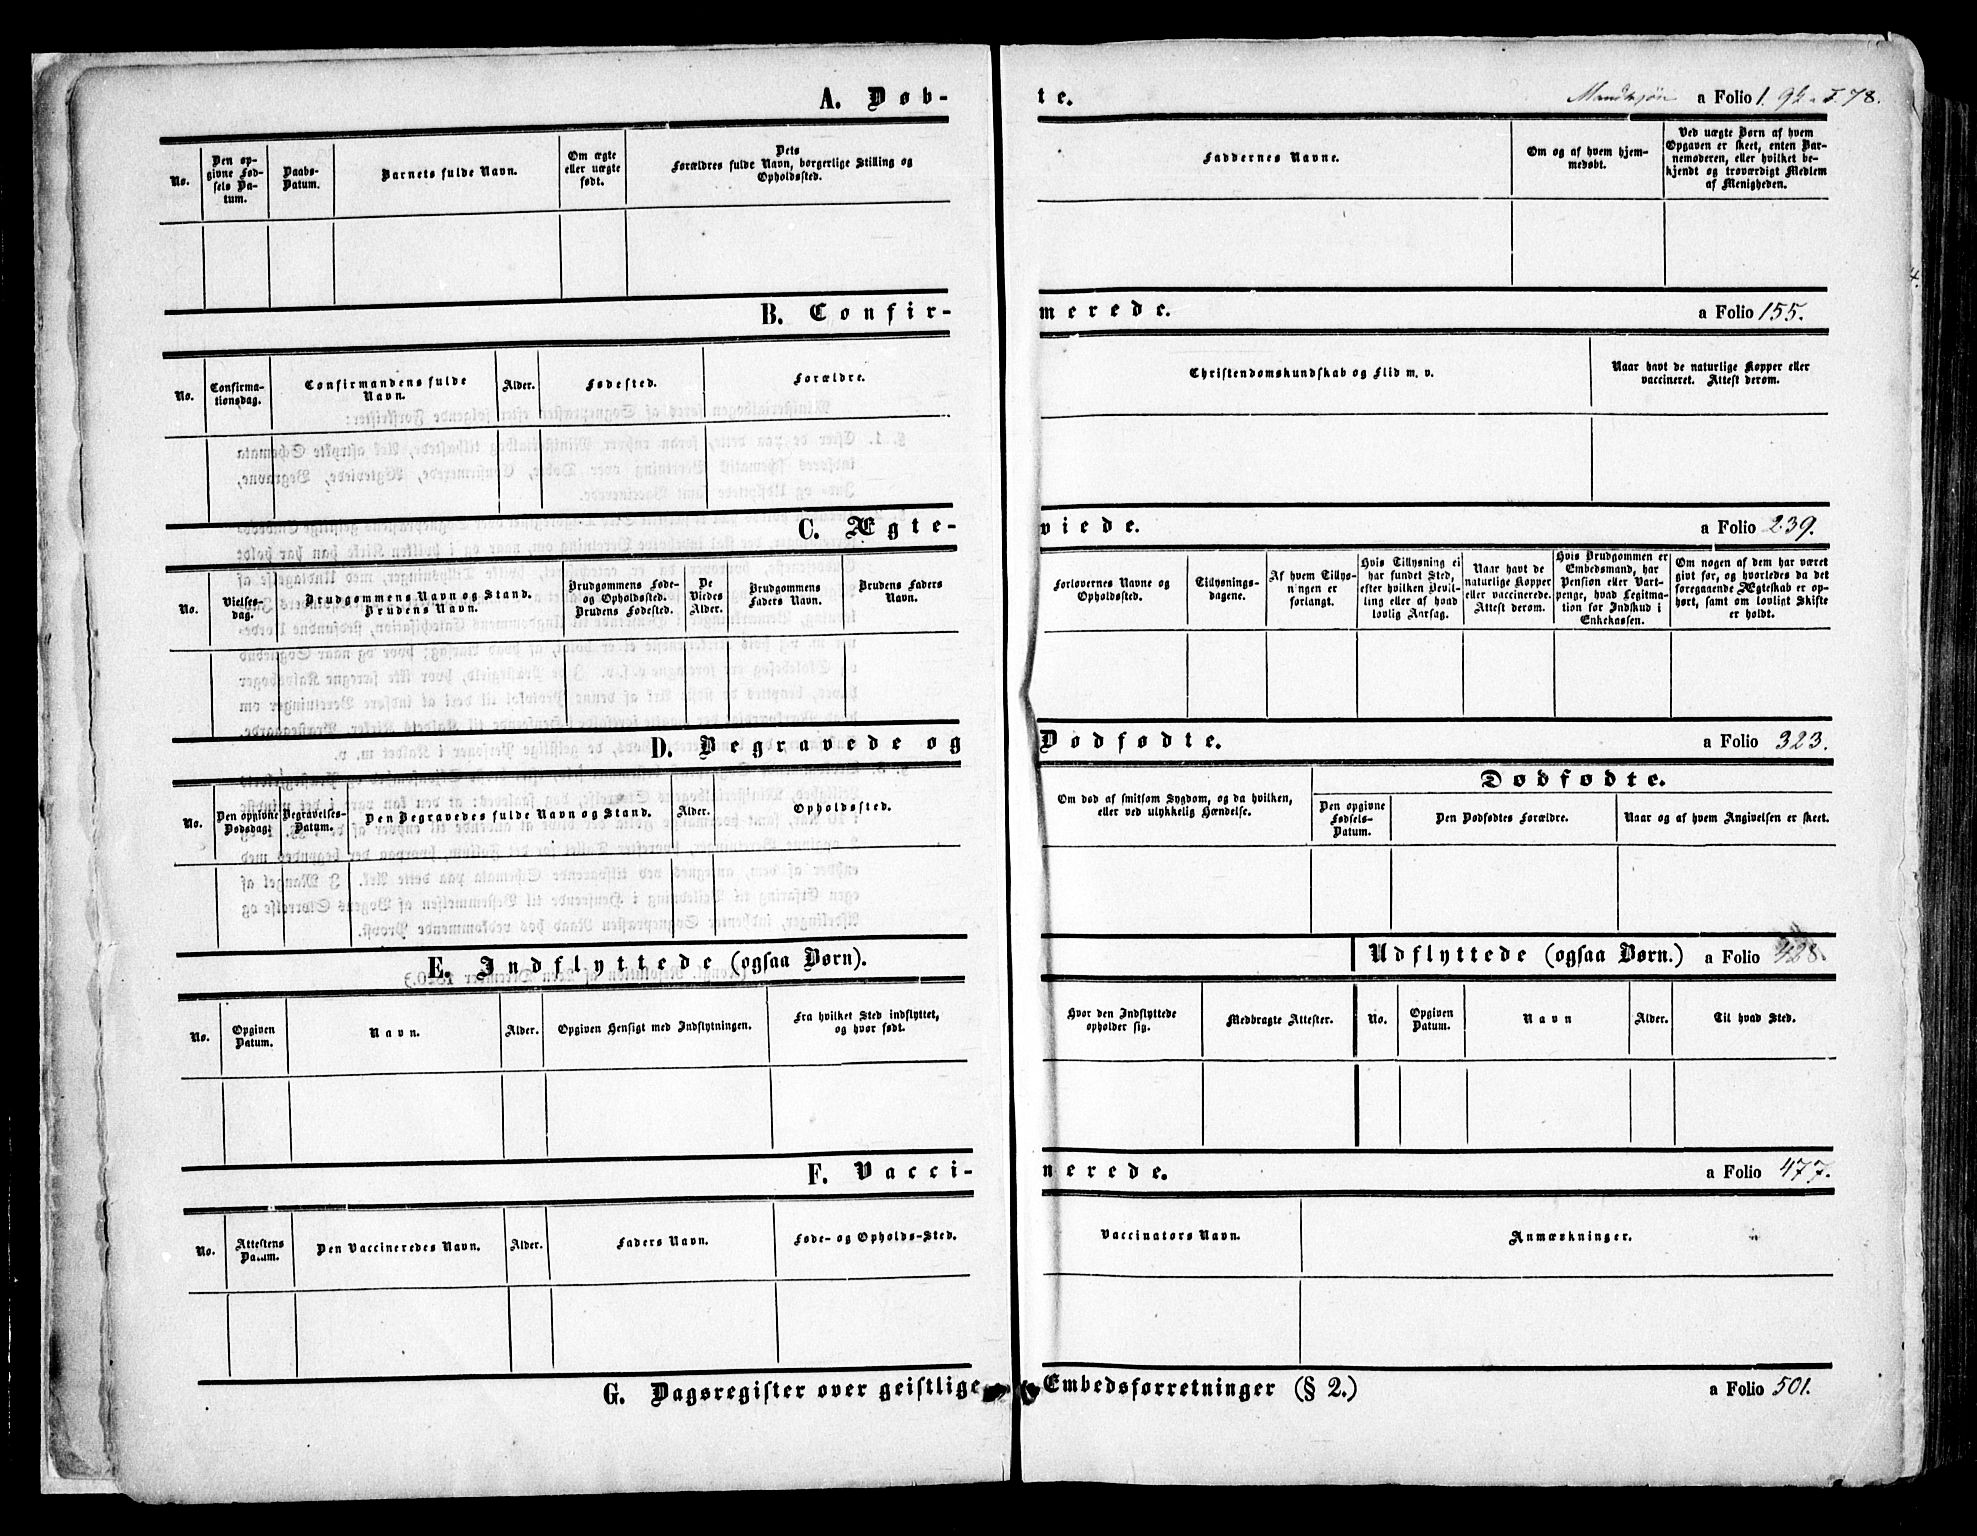 A. Døbte. Mandkjøn a Folio 1. 92 a F. 78.
No.
Den opgivne Fødsels Datum.
Daabs-Datum.
Barnets fulde Navn.
Om ægte eller uægte født.
Dets Forældres fulde Navn, borgerlige Stilling og Opholdssted.
Faddernes Navne.
Om og af hvem hjemmedøbt.
Ved uægte Børn af hvem Opgaven er skeet, enten Barnemoderen, eller hvilket bekjendt og troværdigt Medlem af Menigheden.
B. Confirmerede. a Folio 155.
No.
Confirmationsdag.
Confirmandens fulde Navn.
Alder.
Fødested.
Forældre.
Christendomskundskab og Flid m. v.
Naar havt de naturlige Kopper eller vaccineret. Attest derom.
C. Ægteviede. a Folio 239.
No.
Vielsesdag.
Brudgommens Navn og Stand.
Brudens Navn.
Brudgommens Føde- og Opholdssted.
Brudens Fødested.
De Viedes Alder.
Brudgommens Faders Navn.
Brudens Faders Navn.
Forlovernes Navne og Opholdssted.
Tillysningsdagene.
Af hvem Tillysningen er forlangt.
Hvis Tillysning ei har fundet Sted, efter hvilken Bevilling eller af hvad lovlig Aarsag.
Naar havt de naturlige Kopper eller vaccinerede. Attest derom.
Hvis Brudgommen er Embedsmand, har Pension eller Vartpenge, hvad Legitmation for Indskud i Enkekassen.
Om nogen af dem har været givt før, og hvorledes da det foregaaende Ægteskab er ophørt, samt om lovligt Skifte er holdt.
D. Begravede og Dødfødte. a Folio 323.
No.
Den opgivne Dødsdag.
Begravelses-Datum.
Den Begravedes fulde Navn og Stand.
Alder.
Opholdssted.
Om død af smitsom Sygdom, og da hvilken, eller ved ulykkelig Hændelse.
Dødfødte.
Den opgivne Fødsels-Datum.
Den Dødfødtes Forældre.
Naar og af hvem Angivelsen er skeet.
E. Indflyttede (ogsaa Børn). Udflyttede (ogsaa Børn.) a Folio 428.
No.
Opgiven Datum.
Navn.
Alder.
Opgiven Hensigt med Indflytningen.
Fra hvilket Sted indflyttet, og hvor født.
Hvor den Indflyttede opholder sig.
Medbragte Attester.
No.
Opgiven Datum.
Navn
Alder.
Til hvad Sted.
F. Vaccinerede. a Folio 477.
No.
Attestens Datum.
Den Vaccineredes Navn.
Alder.
Faders Navn.
Føde- og Opholds-Sted.
Vaccinators Navn.
Anmærkninger.
G. Dagsregister over geistlige Embedsforretninger (§ 2.) a Folio 501.